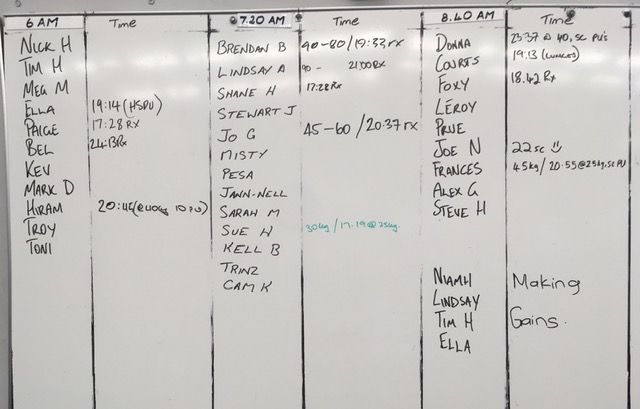 6 AM Time
NICK H
TIM H
MEG M
ELLA 19:14 (HSPU)
PAIGE 17:28 RX
BEL 24:13 RX
KEV
MARK D
HIRAM
TROY
TONI
7.20 AM Time
BRENDAN B 40-80/19:33 rx
LINDSAY A 90- 21:00 RX
SHANE H 17:28 Rx
STEWART J
JO G 45-60/20:37 rx
MISTY
PESA
JAWN-NELL
SARAH M
SUE H 30kg/17.19@25kg.
KELL B
TRINZ
CAM K
8.40 AM Time
DONNA 23:37 @ 40, SC PU's
COURTS 19:13 (LUNGES)
FOXY 18.42 Rx
LEROY
PRUE
JOE N 22 sc
FRANCES 45kg/20.55@25kg, SC PU
ALEX G
STEVE H
NIAMH Making
LINDSAY
TIM H Gains.
ELLA